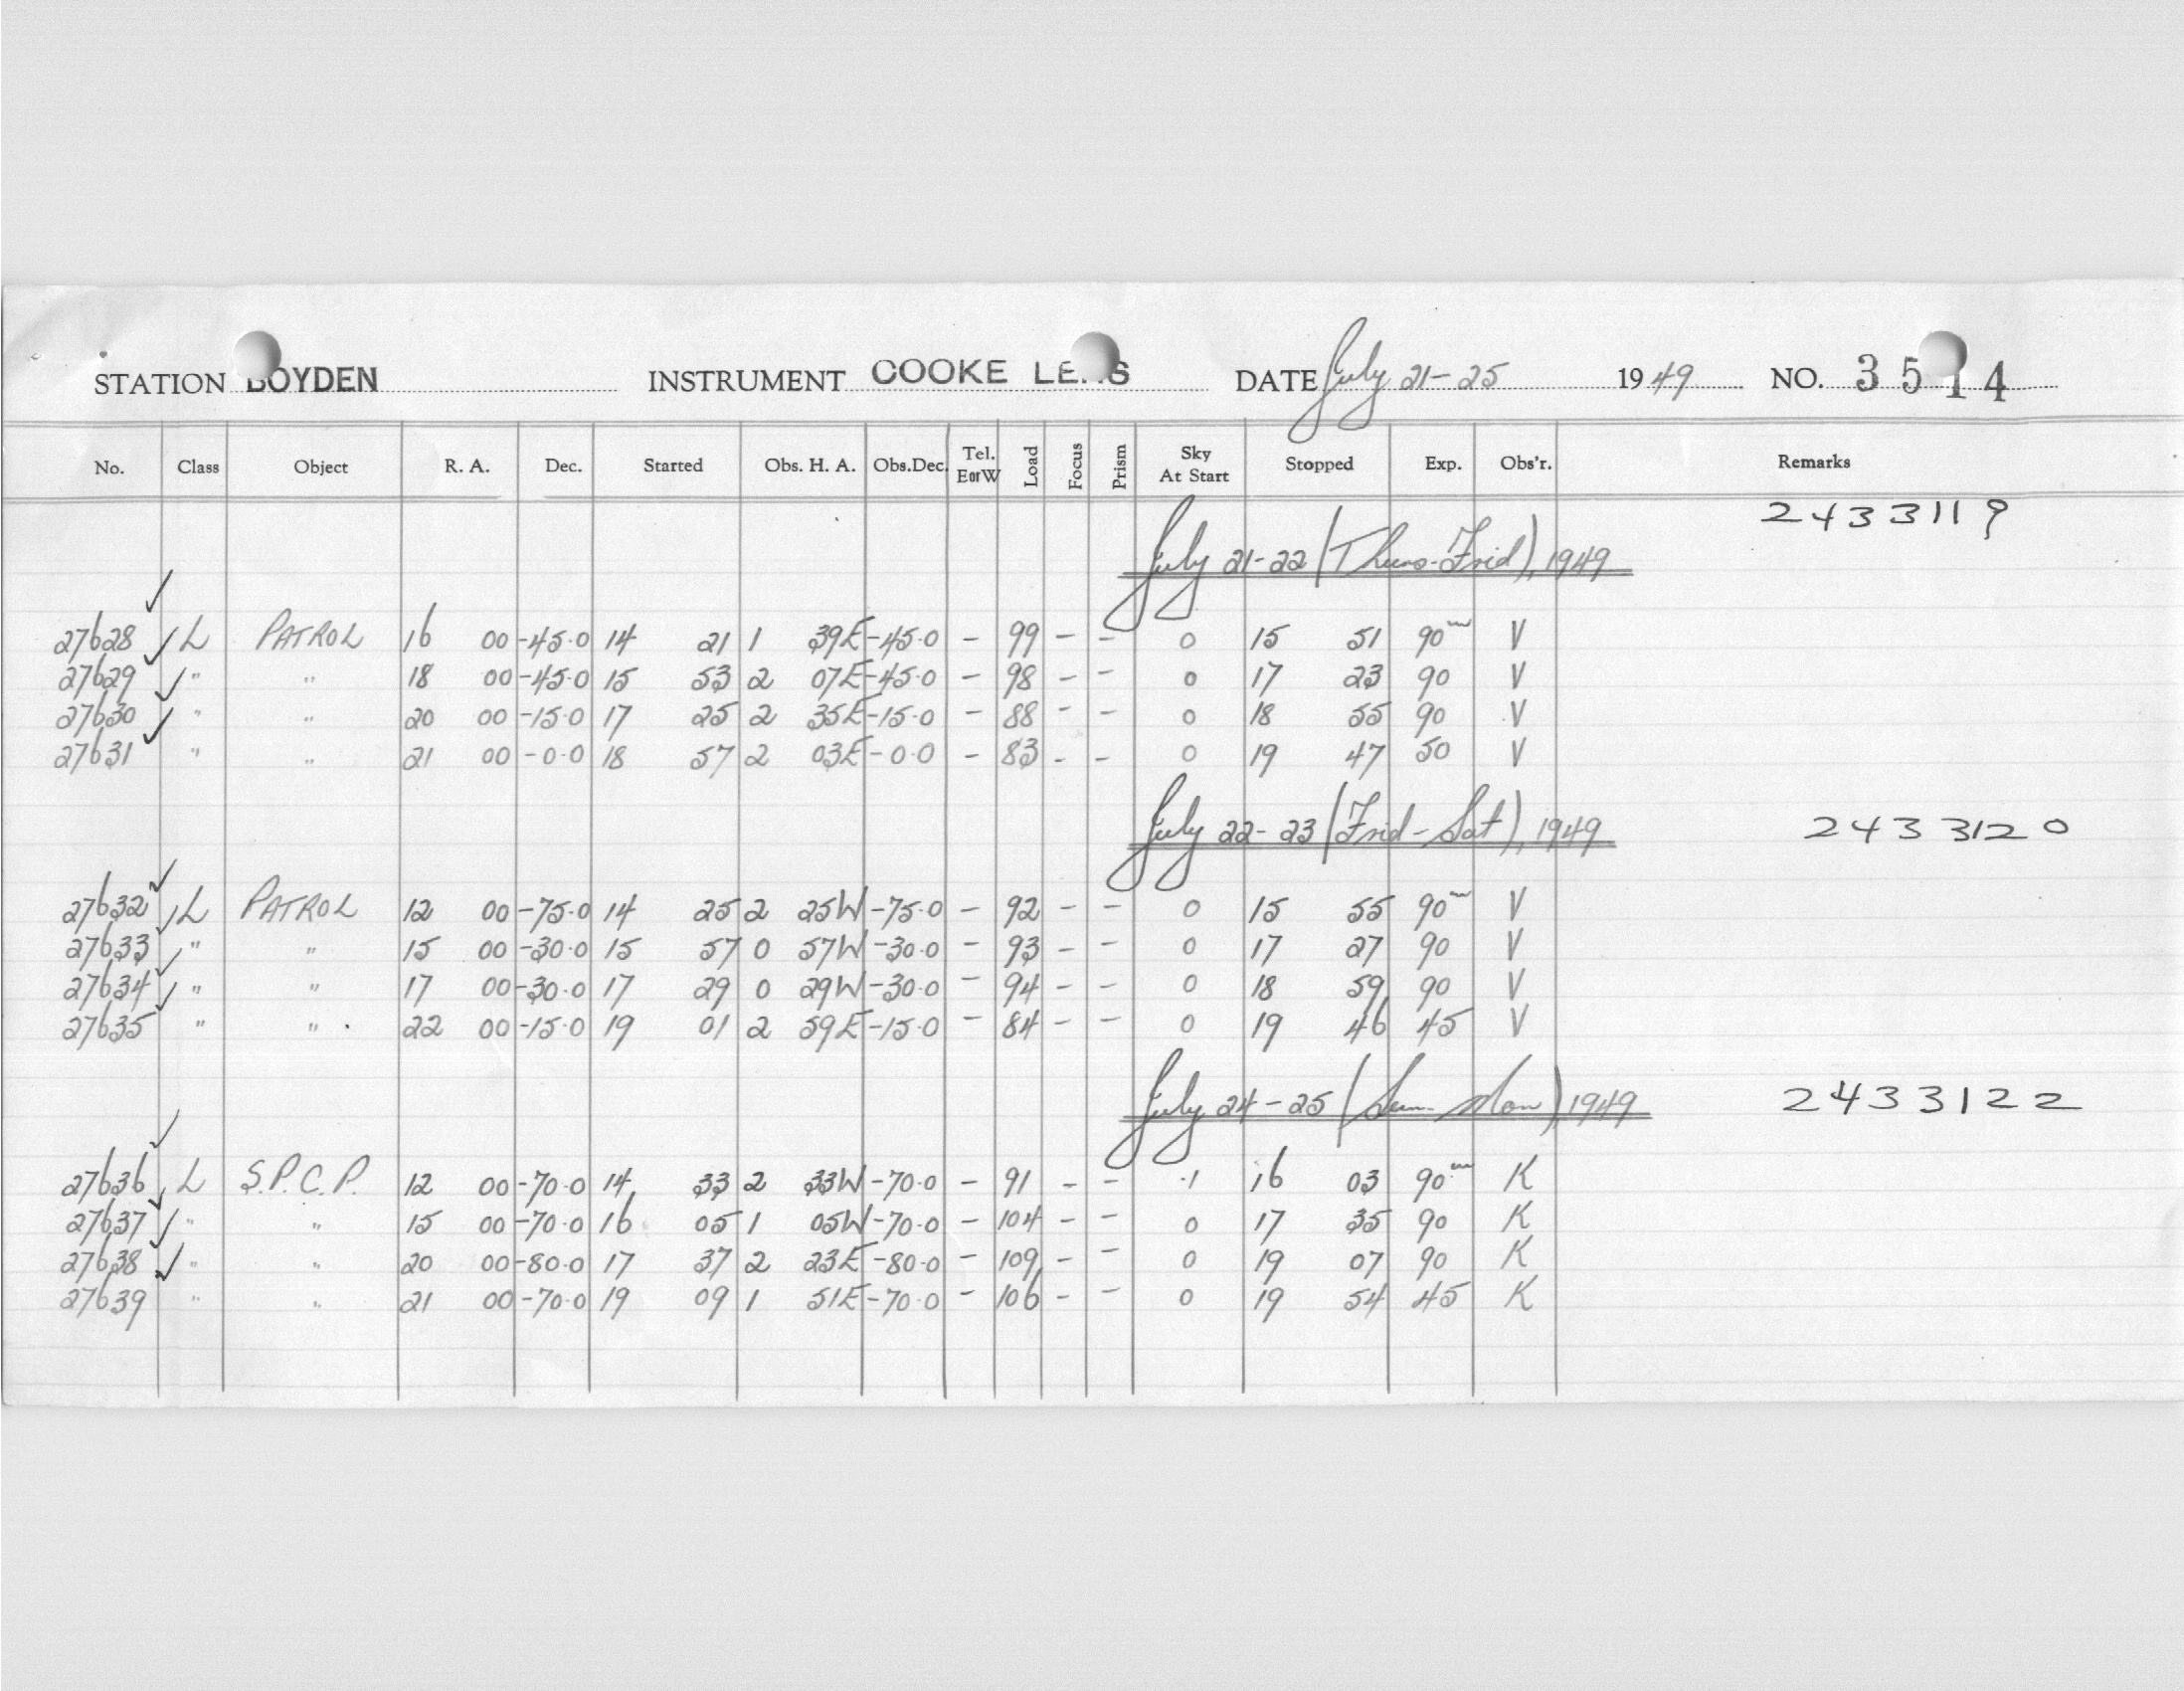 STATION BOYDEN INSTRUMENT COOKE LENS DATE July 21-25 1949 NO. 3514
No. Class Object R. A. Dec. Started Obs. H. A. Obs.Dec. Tel. E or W Load Focus Prism Sky At Start Stopped Exp. Obs'r. Remarks
2433119
July 21-22 (Thurs-Frid), 1949
27628 L PATROL 16 00 -45.0 14 21 1 39E -45.0 - 99 - - 0 15 51 90m V
27629 " " 18 00 -45.0 15 53 2 07E -45.0 - 98 - - 0 17 23 90 V
27630 " " 20 00 -15.0 17 25 2 35E -15.0 - 88 - - 0 18 55 90 V
27631 " " 21 00 -0.0 18 57 2 03E -0.0 - 83 - - 0 19 47 50 V
July 22-23 (Frid-Sat), 1949 2433120
27632 L PATROL 12 00 -75.0 14 25 2 25W -75.0 - 92 - - 0 15 55 90m V
27633 " " 15 00 -30.0 15 57 0 57W -30.0 - 93 - - 0 17 27 90 V
27634 " " 17 00 -30.0 17 29 0 29W -30.0 - 94 - - 0 18 59 90 V
27635 " " 22 00 -15.0 19 01 2 59E -15.0 - 84 - - 0 19 46 45 V
July 24-25 (Sun-Mon), 1949 2433122
27636 L S.P.C.P. 12 00 -70.0 14 33 2 33W -70.0 - 91 - - .1 16 03 90m K
27637 " " 15 00 -70.0 16 05 1 05W -70.0 - 104 - - 0 17 35 90 K
27638 " " 20 00 -80.0 17 37 2 23E -80.0 - 109 - - 0 19 07 90 K
27639 " " 21 00 -70.0 19 09 1 51E -70.0 - 106 - - 0 19 54 45 K